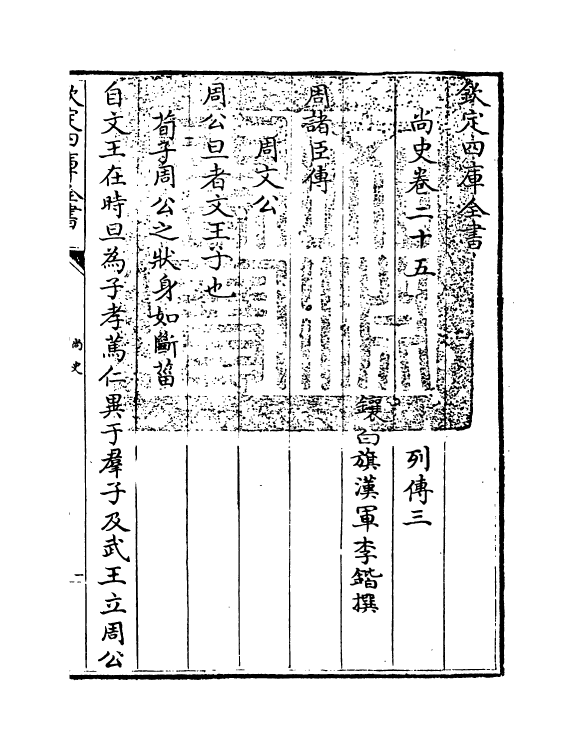 欽定四庫全書
尚史卷二十五　列傳三
鑲白旗漢軍李鍇撰
周諸臣傳
周文公
周公旦者文王子也
荀子周公之狀身如斷菑
自文王在時旦為子孝篤仁異于羣子及武王立周公
欽定四庫全書
尚史
一